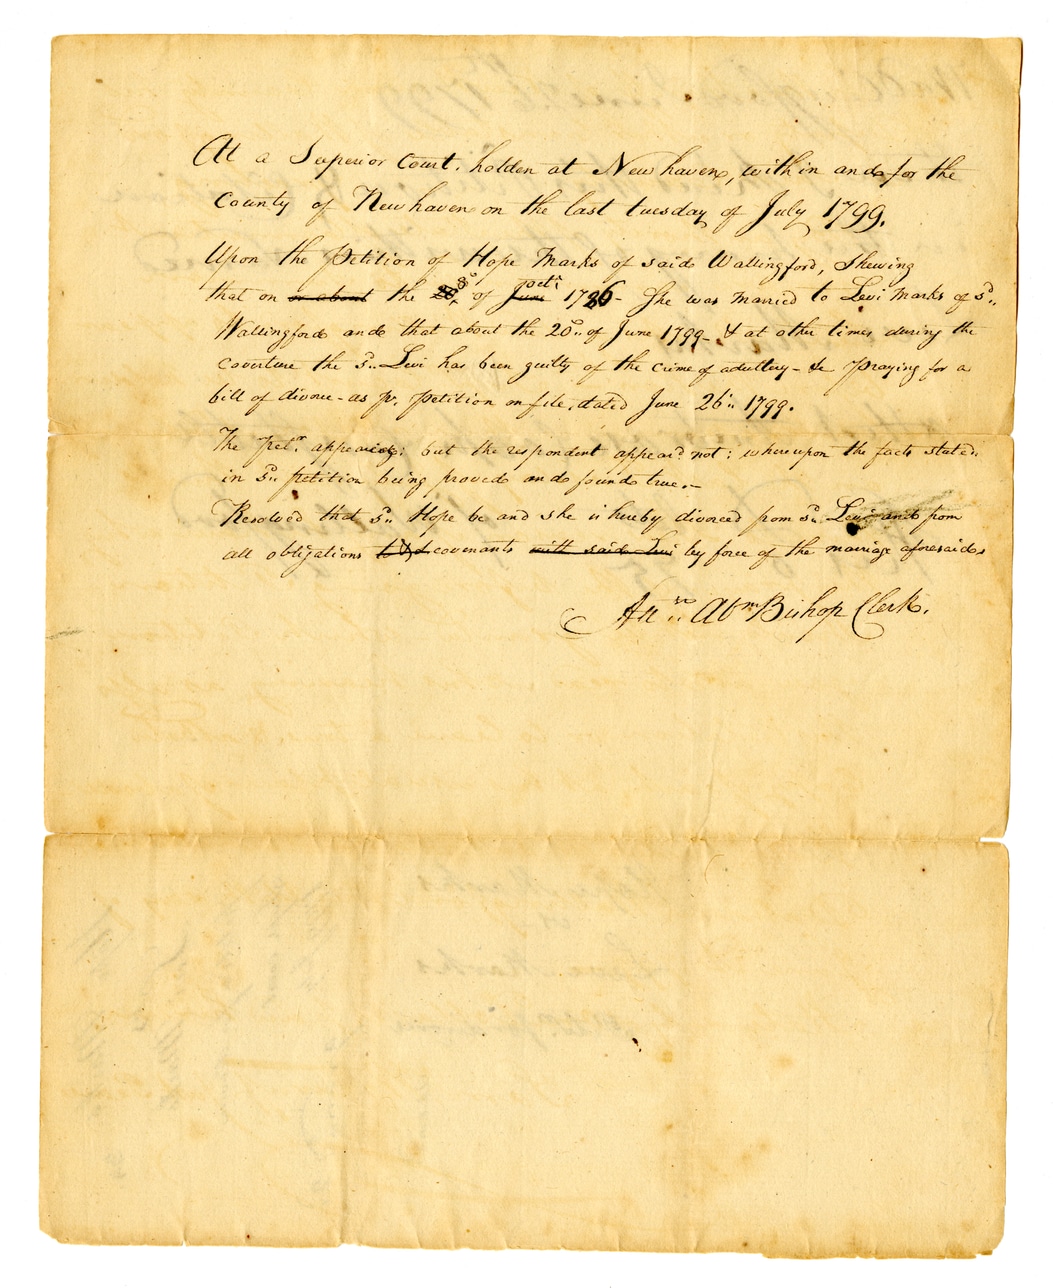 At a Superior Court, holden at Newhaven, within and for the
County of Newhaven on the last tuesday of July 1799.
Upon the Petition of Hope Marks of said Wallingford, Shewing
that on or about the 8th of Octr 1786 - She was married to Levi Marks of sd..
Wallingford and that about the 20th.. of June 1799 - & at other times, during the
coverture the sd.. Levi has been guilty of the crime of adultery - & Praying for a
bill of divorce - as pr. Petition on file, dated June 26th.. 1799.
The Petr. appearing; but the respondent appeard not: whereupon the facts stated
in sd.. petition being proved and found true. -
Resolved that sd.. Hope be and she is hereby divorced from sd.. Levi and from
all obligations to & covenants with said Levi by force of the marriage aforesaid
Abm Bishop Clerk.